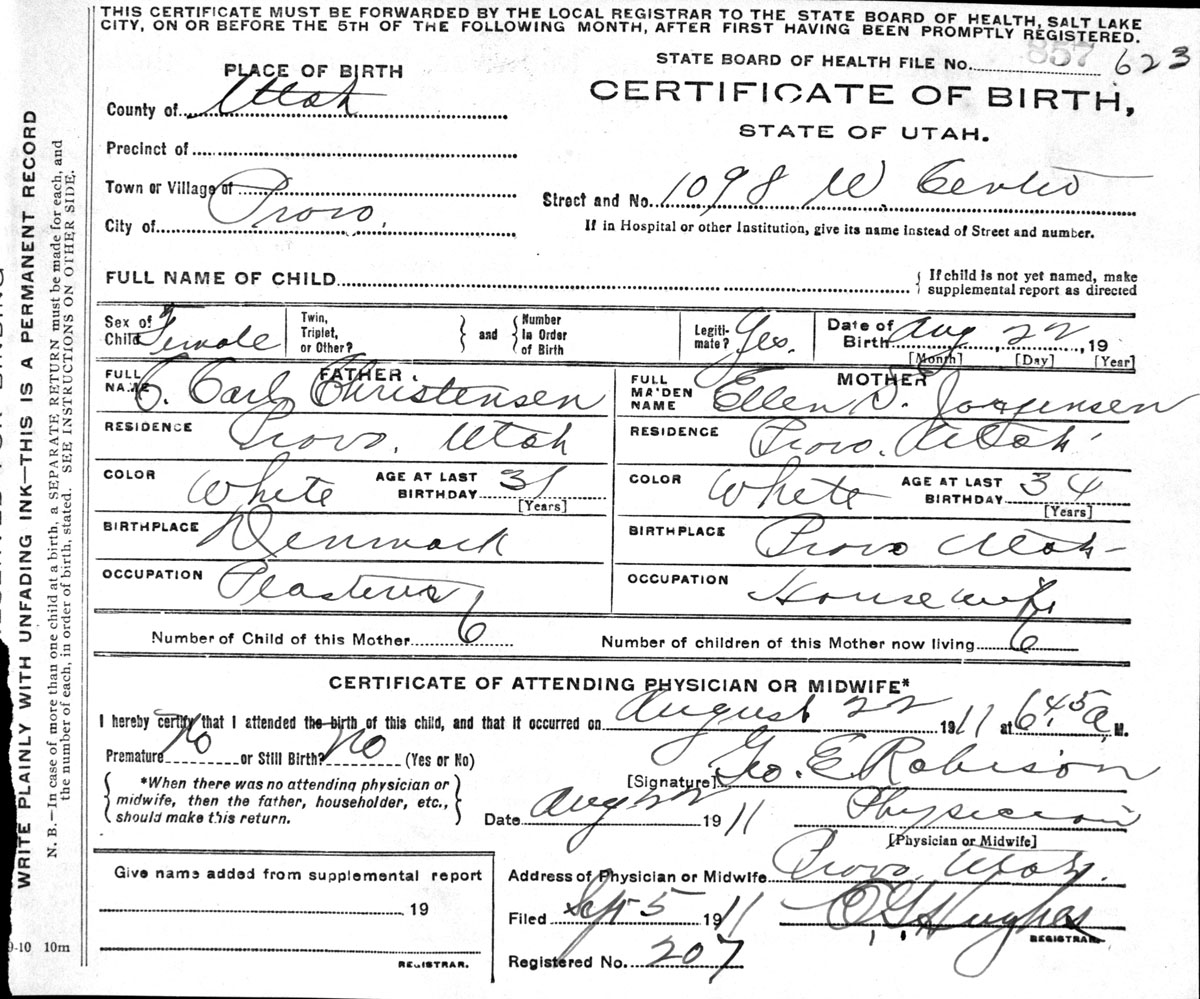 THIS CERTIFICATE MUST BE FORWARDED BY THE LOCAL REGISTRAR TO THE STATE BOARD OF HEALTH, SALT LAKE
CITY, ON OR BEFORE THE 5TH OF THE FOLLOWING MONTH, AFTER FIRST HAVING BEEN PROMPTLY REGISTERED.
WRITE PLAINLY WITH UNFADING INK—THIS IS A PERMANENT RECORD
N. B.—In case of more than one child at a birth, a SEPARATE RETURN must be made for each, and
the number of each, in order of birth, stated. SEE INSTRUCTIONS ON OTHER SIDE.
STATE BOARD OF HEALTH FILE No. 857 623
PLACE OF BIRTH
CERTIFICATE OF BIRTH,
STATE OF UTAH.
County of Utah
Precinct of
Town or Village of
City of Provo,
Street and No. 1098 W. Center
If in Hospital or other Institution, give its name instead of Street and number.
FULL NAME OF CHILD
If child is not yet named, make
supplemental report as directed
Sex of Child Female
Twin, Triplet, or Other?
and
Number In Order of Birth
Legiti-mate? Yes.
Date of Birth Aug, 22, 19
[Month] [Day] [Year]
FATHER
FULL NAME C. Carl Christensen
MOTHER
FULL MAIDEN NAME Ellen D. Jorgensen
RESIDENCE Provo, Utah
RESIDENCE Provo. Utah
COLOR White AGE AT LAST BIRTHDAY 31 [Years]
COLOR White AGE AT LAST BIRTHDAY 34 [Years]
BIRTHPLACE Denmark
BIRTHPLACE Provo Utah
OCCUPATION
OCCUPATION Housewife
Number of Child of this Mother 6
Number of children of this Mother now living 6
CERTIFICATE OF ATTENDING PHYSICIAN OR MIDWIFE*
I hereby certify that I attended the birth of this child, and that it occurred on August 22 1911 at 6:45 a M.
Premature No or Still Birth? No (Yes or No)
[Signature] Geo. E. Robison
*When there was no attending physician or
midwife, then the father, householder, etc.,
should make this return.
Date Aug 22 1911
Physician
[Physician or Midwife]
Give name added from supplemental report
19
REGISTRAR.
Address of Physician or Midwife Provo, Utah.
Filed Sep 5 1911 O G Hughes
REGISTRAR
Registered No. 207
9-10 10m